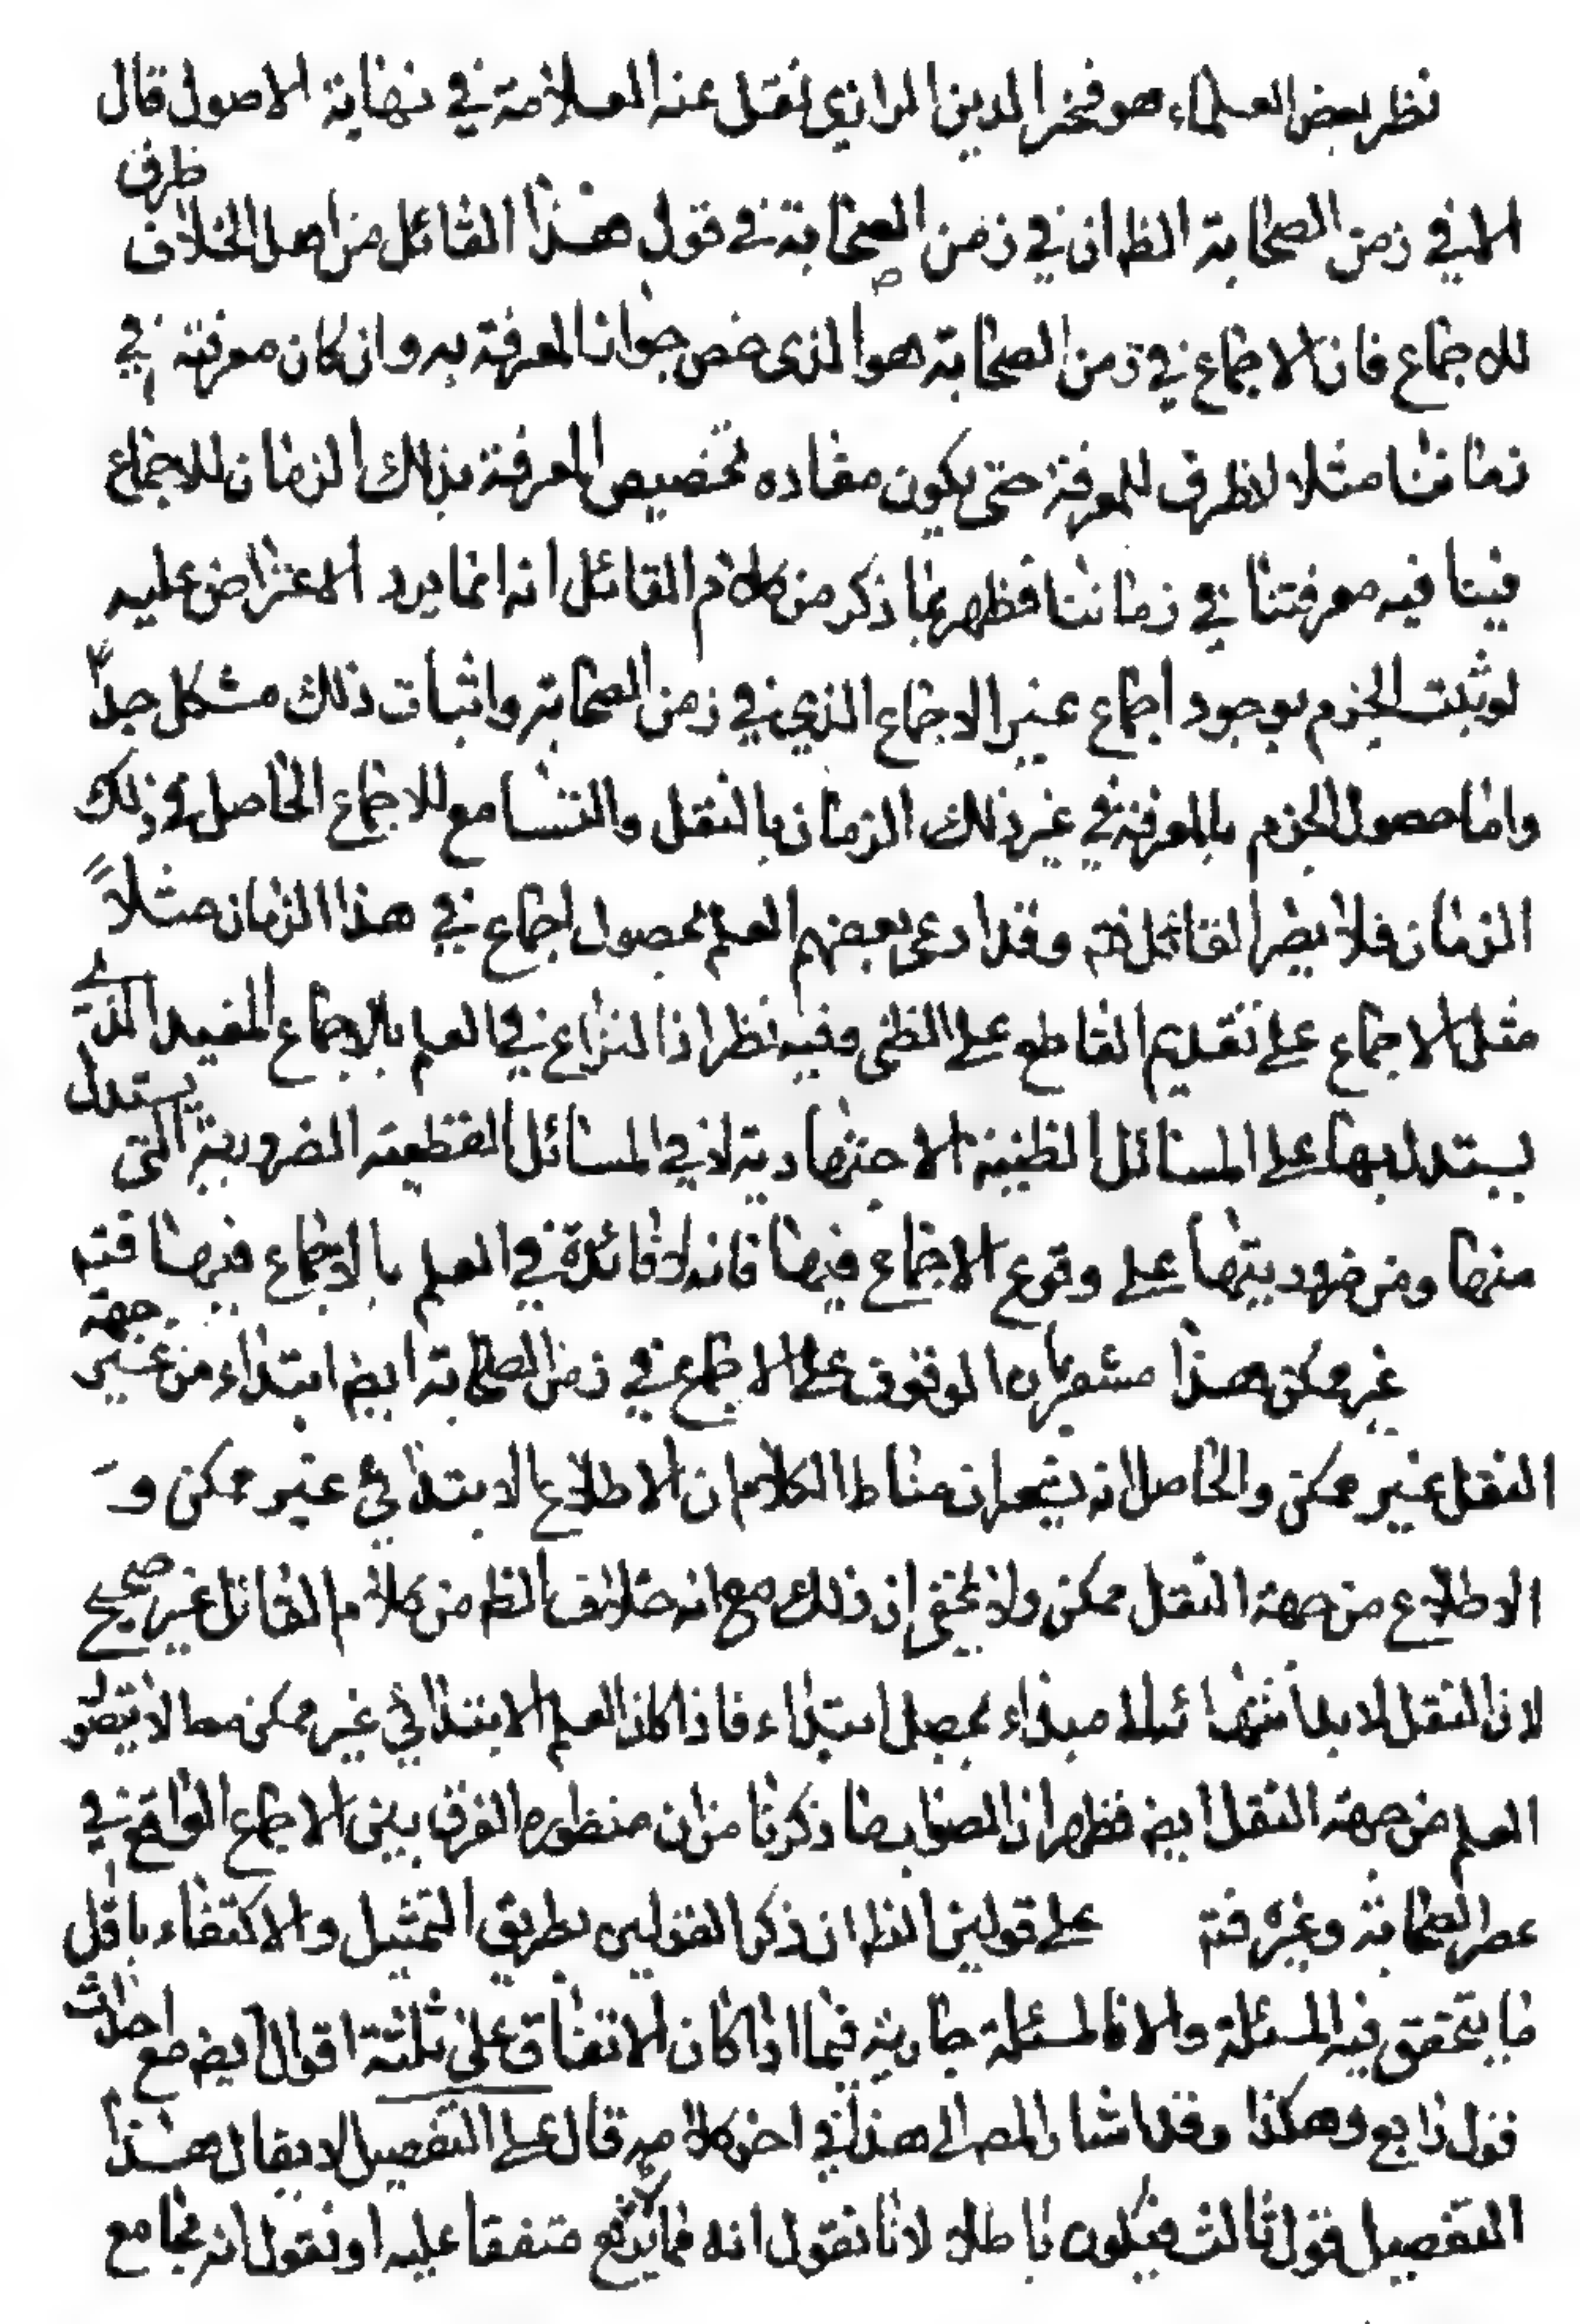 نظر بعض العلماء هو فخر الدين الرازي نقل عنه العلامة في نهاية الاصول قال
الا في زمن الصحابة الظ ان في زمن الصحابة في قول هذا القائل من اهل الخلاف ظرف
للاجماع فان الاجماع في زمن الصحابة هو الذى خص جواز المعرفة به وان كان معرفته في
زماننا مثلا لا ظرف للمعرفة حتى يكون مفاده تخصيص المعرفة بذلك الزمان للاجماع
فينا فيه معرفتنا في زماننا فظهر بما ذكر من كلام القائل انه انما يرد الاعتراض عليه
لو ثبت الجزم بوجود اجماع غير الاجماع الذي في زمن الصحابة واثبات ذلك مشكل جدا
واما حصول الجزم بالمعرفة في غير ذلك الزمان بالنقل والتسامع للاجماع الحاصل في ذلك
الزمان فلا يضر القائل فتم وقد ادعى بعضهم العلم بحصول اجماع في هذا الزمان مثلاً
مثل الاجماع على تقديم القاطع على الظنى وفيه نظر اذ النزاع في العلم بالاجماع المفيد الذي
يستدل بها على المسائل الظنية الاجتهادية لا في المسائل القطعية الضرورية التى يستدل
منها ومن ضروريتها على وقوع الاجماع فيها فانه لا فائدة في العلم بالاجماع فيها فتم
غير ممكن هذا مشعر بان الوقوف على الاجماع في زمن الصحابة ايض ابتداء من غير جهة
النقل غير ممكن والحاصل انه يشعر ان مناط الكلام ان الاطلاع الابتدائي غير ممكن و
الاطلاع من جهة النقل ممكن ولا يخفى ان ذلك مع انه خلاف الظ من كلام القائل غير صحيح
لان النقل لا بد انتهائه الى مبداء يحصل ابتداء فاذا كان العلم الابتدائي غير ممكن مط لا يتصور
العلم من جهة النقل ايض فظهر ان الصواب ما ذكرنا من ان منظوره الفرق بين الاجماع الواقع في
عصر الصحابة وغيره فتم على قولين الظ ان ذكر القولين بطريق التمثيل والاكتفاء باقل
ما يتحقق فيه المسئلة والا فالمسئلة جارية فيما اذا كان الاتفاق على ثلثة اقوال ايض مع احداث
قول رابع وهكذا وقد اشار المص الى هذا في اخر كلامه قال على التفصيل لا يقال هذا
التفصيل قول ثالث فيكون باطلا لانا نقول انه مما يرفع متفقا عليه او نقول انه يجامع